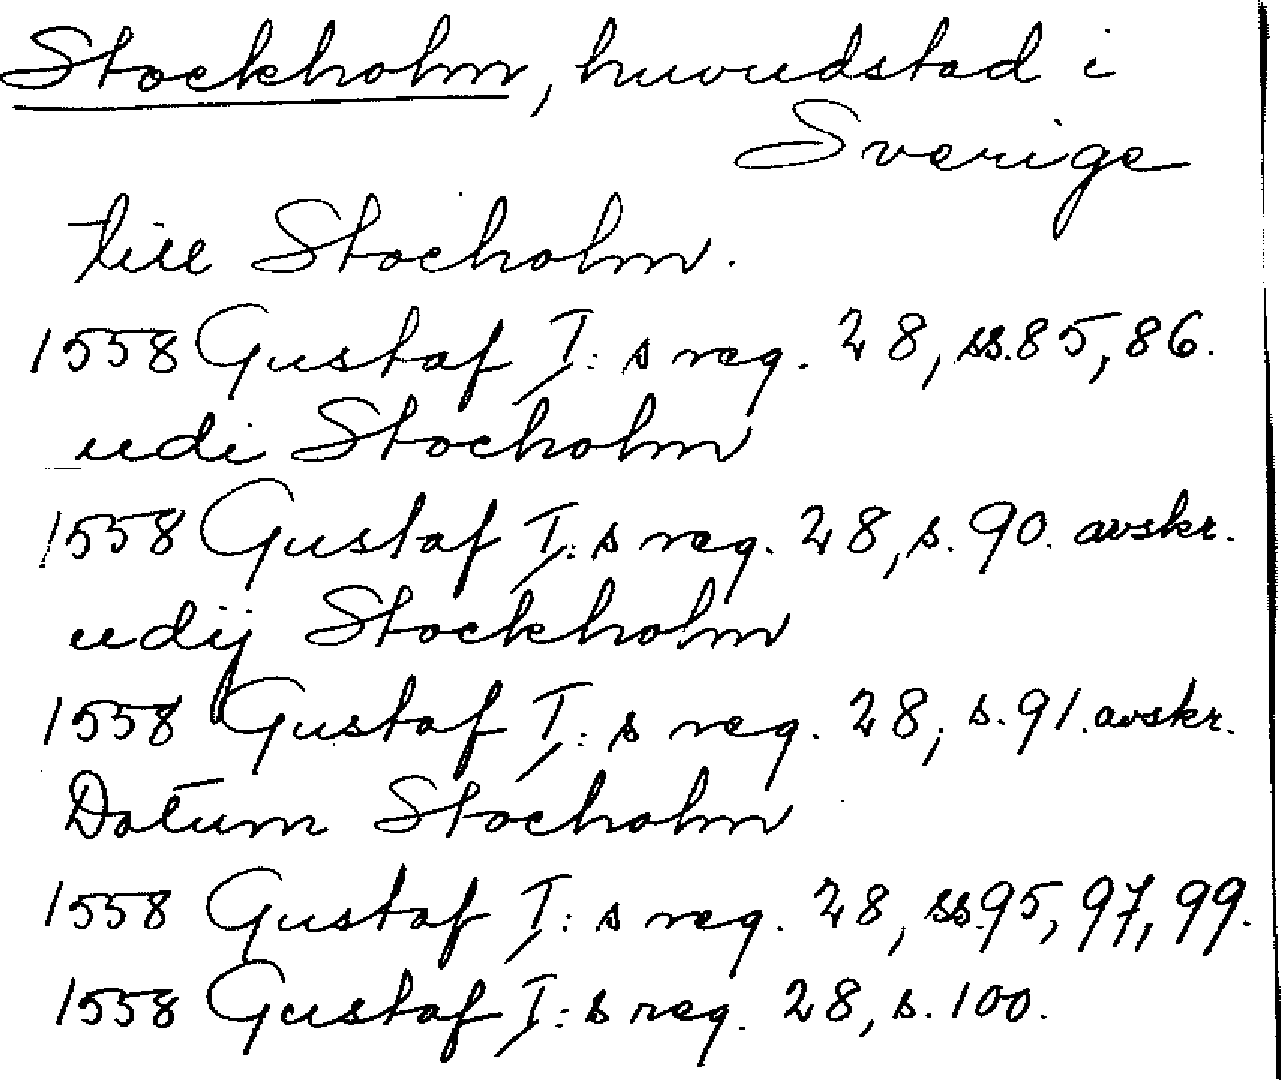 Stockholm, huvudstad i
Sverige
till Stocholm.
1558 Gustaf I: s reg. 28, ss. 85, 86.
udi Stocholm
1558 Gustaf I: s reg. 28, s. 90. avskr.
udij Stockholm
1558 Gustaf I: s reg. 28, s. 91. avskr.
Datum Stocholm
1558 Gustaf I: s reg. 28, ss. 95, 97, 99.
1558 Gustaf I: s reg. 28, s. 100.